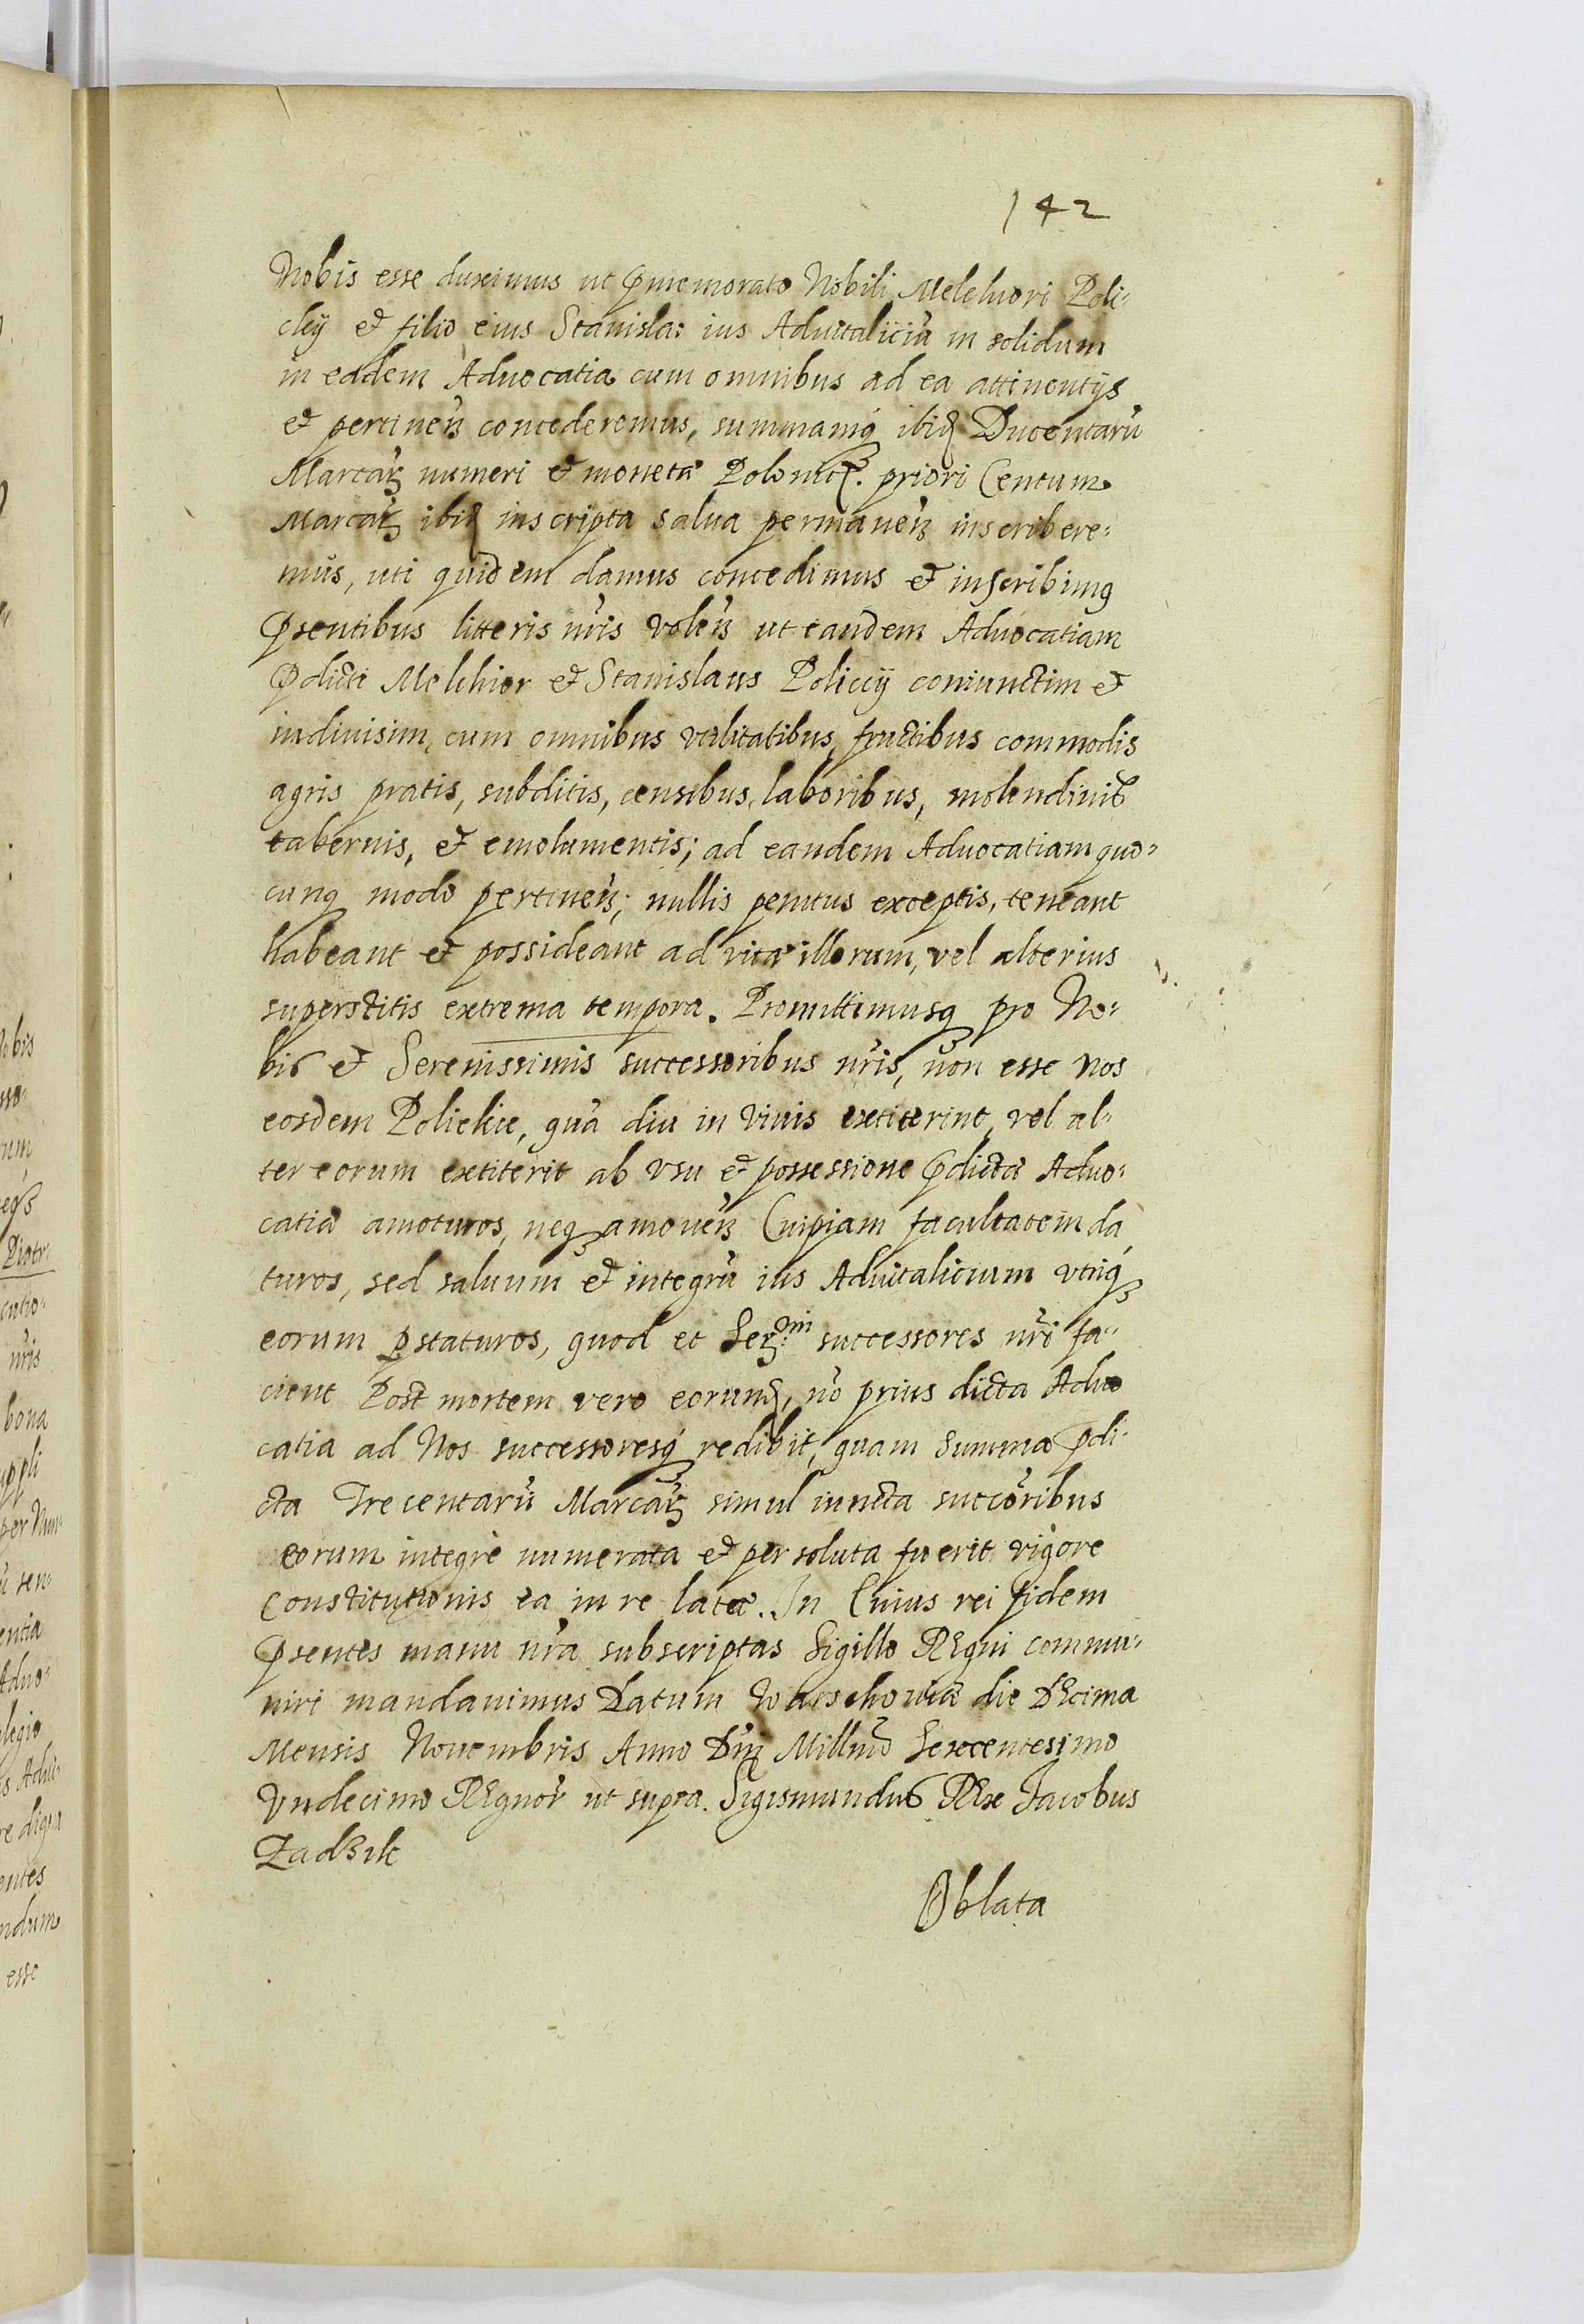 142
Nobis esse duximus ut p̃memorato Nobili Melchiori Poli:
ckÿ et filio eius Stanislao ius Aduitaliciũ in solidum
in eadem Aduocatia cum omnibus ad ea attinentÿs
et pertineñ concederemus, summamq́ ibid Ducentarũ
Marcaꝝ numeri et monetæ Polonicæ. priori Centum
Marcaꝝ ibid inscripta salua permaneñ inscribere:
mus, uti quidem damus concedimus et inscribimꝰ
p̃sentibus litteris nr̃is voleñ ut eandem Aduocatiam
p̃dicti Melchior et Stanislaus Policcÿ coniunctim et
indiuisim, cum omnibus vtilitatibus, fructibus commodis
agris pratis, subditis, censibus, laboribus, molendinis
tabernis, et emolumentis; ad eandem Aduocatiam quo:
cunqꝫ modo pertineñ; nullis penitus exceptis, teneant
habeant et possideant ad vitæ illorum, vel alterius
superstitis extrema tempora. Promittimusqꝫ pro No:
bis et Serenissimis successoribus nr̃is, non esse nos
eosdem Polickie, quã diu in viuis extiterint, vel al:
ter eorum extiterit ab vsu et possessione p̃dictæ Aduo:
catiæ amoturos, neqꝫ amoueñ Cuipiam facultatem da
turos, sed saluum et integrũ ius Aduitalicium vtriqꝫ
eorum p̃staturos, quod et Serᵐⁱ successores nr̃i fa:
cient Post mortem vero eorund, nõ prius dicta Aduo
catia ad Nos successoresq́ redibit, quam summa p̃di:
cta Trecentarũ Marcaꝝ simul iuncta succõribus
eorum integrè numerata et persoluta fuerit vigore
Constitutionis ea in re latæ. In Cuius rei fidem
p̃sentes manu nr̃a subscriptas Sigillo Regni commu:
niri mandauimus Datum Warschouiæ die Decima
Mensis Nouembris Anno Dñi Millmõ Sexcentesimo
Vndecimo Regnor̃ ut supra. Sigismundus Rex Jacobus
Zadzik
Oblata